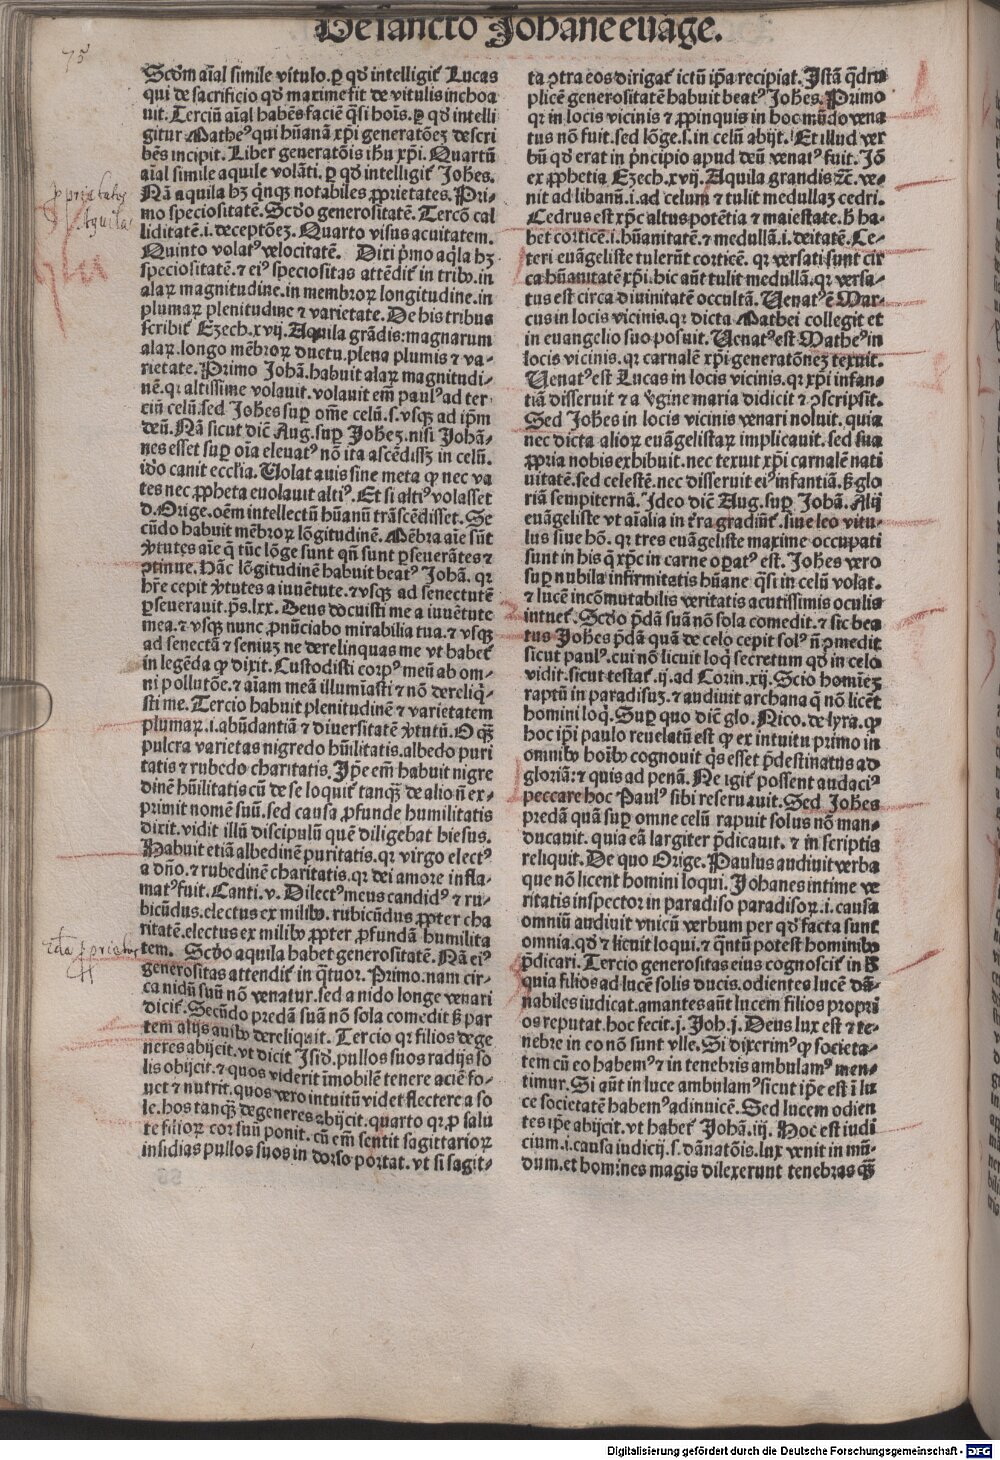 De sancto Johane euāge.
75
Scd̄m aīal simile vitulo. ꝑ qd̄ intelligit̄ Lucas
qui de sacrificio qd̄ maxime fit de vitulis inchoa
uit. Terciū aīal habēs faciē q̄si hoīs. ꝑ qd̄ intelli
gitur Matheꝰ qui hūanā xp̄i generatōeꝫ descri
bēs incipit. Liber generatōis ih̄u xp̄i. Quartū
aīal simile aquile volāti. ꝑ qd̄ intelligit̄ Joh̄es.
Nā aquila hꝫ q̄nqꝫ notabiles ꝓprietates. Pri-
mo speciositatē. Scd̄o generositatē. Tercō cal
liditatē .i. deceptōeꝫ. Quarto visus acuitatem.
Quinto volatꝰ velocitatē. Dixi pͥmo aq̄la hꝫ
speciositatē. ⁊ eiꝰ speciositas attēdit̄ in tribꝰ. in
alaꝝ magnitudine. in membroꝝ longitudine. in
plumaꝝ plenitudine ⁊ varietate. De his tribus
scribit̄ Ezech. xvij. Aquila grādis: magnarum
alaꝝ. longo mēbroꝝ ductu. plena plumis ⁊ va-
rietate. Primo Johā. habuit alaꝝ magnitudi-
nē. qꝛ altissime volauit. volauit em̄ paulꝰ ad ter-
ciū celū. sed Joh̄es suꝑ om̄e celū .s. vsqꝫ ad ip̄m
deū. Nā sicut dic̄ Aug. suꝑ Joh̄eꝫ. nisi Johā-
nes esset suꝑ oīa eleuatꝰ nō ita ascēdissꝫ in celū.
iō canit eccl̄ia. Volat auis sine meta qꝫ nec va
tes nec ꝓpheta euolauit altiꝰ. Et si altiꝰ volasset
d. Orige. oēm intellectū hūanū trāscēdisset. Se
cūdo habuit mēbroꝝ lōgitudinē. Mēbra aīe sūt
v̓tutes aīe q̄ tūc lōge sunt qn̄ sunt ꝑseuerātes ⁊
ꝯtinue. Hāc lōgitudinē habuit beatꝰ Johā. qꝛ
hr̄e cepit v̓tutes a iuuētute. ⁊ vsqꝫ ad senectutē
ꝑseuerauit. ps̄. lxx. Deus docuisti me a iuuētute
mea. ⁊ vsqꝫ nunc ꝓnūciabo mirabilia tua. ⁊ vsqꝫ
ad senectā ⁊ seniuꝫ ne derelinquas me vt habet̄
in legēda qꝫ dixit. Custodisti corpꝰ meū ab om-
ni pollutōe. ⁊ aīam meā illumīasti ⁊ nō dereliqͥ-
sti me. Tercio habuit plenitudinē ⁊ varietatem
plumaꝝ .i. abūdantiā ⁊ diuersitatē v̓tutū. O qꝫ̄
pulcra varietas nigredo hūilitatis. albedo puri
tatis ⁊ rubedo charitatis. Ip̄e em̄ habuit nigre
dinē hūilitatis cū de se loquit̄ tanqꝫ de alio n̄ ex-
primit nomē suū. sed causa ꝓfunde humilitatis
dixit. vidit illū discipulū quē diligebat hiesus.
Habuit etiā albedinē puritatis. qꝛ virgo electꝰ
a dn̄o. ⁊ rubedinē charitatis. qꝛ dei amore infla-
matꝰ fuit. Canti. v. Dilectꝰ meus candidꝰ ⁊ ru-
bicūdus. electus ex milibꝰ. rubicūdus ꝓpter cha
ritatē. electus ex milibꝰ ꝓpter ꝓfundā humilita
tem. Scd̄o aquila habet generositatē. Nā eiꝰ
generositas attendit̄ in qͣtuor. Primo. nam cir-
ca nidū suū nō venatur. sed a nido longe venari
dicit̄. Secūdo predā suā nō sola comedit sꝫ par
tem alijs auibꝰ dereliquit. Tercio qꝛ filios dege
neres abijcit. vt dicit Isid. pullos suos radijs so
lis obijcit. ⁊ quos viderit īmobilē tenere aciē fo-
uet ⁊ nutrit. quos vero intuitū videt flectere a so
le. hos tanqꝫ degeneres abijcit. quarto qꝛ ꝓ salu
te filioꝝ cor suū ponit. cū em̄ sentit sagittarioꝝ
insidias pullos suos in dorso portat. vt si sagit-
ta ꝯtra eos dirigat̄ ictū ip̄a recipiat. Istā q̄dru
plicē generositatē habuit beatꝰ Joh̄es. Primo
qꝛ in locis vicinis ⁊ ꝓpinquis in hoc mūdo vena
tus nō fuit. sed lōge .s. in celū abijt. Et illud ver
bū qd̄ erat in pͥncipio apud deū venatꝰ fuit. Jō
ex ꝓphetia Ezech. xvij. Aquila grandis ⁊c̄. ve-
nit ad libanū .i. ad celum ⁊ tulit medullaꝫ cedri.
Cedrus est xp̄c altus potētia ⁊ maiestate. h̄ ha-
bet corticē .i. hūanitatē. ⁊ medullā .i. deitatē. Ce-
teri euāgeliste tulerūt corticē. qꝛ versati sunt cir
ca hūanitatē xp̄i. hic aūt tulit medullā. qꝛ versa-
tus est circa diuinitatē occultā. Venatꝰ ē Mar-
cus in locis vicinis. qꝛ dicta Mathei collegit et
in euangelio suo posuit. Venatꝰ est Matheꝰ in
locis vicinis. qꝛ carnalē xp̄i generatōneꝫ texuit.
Venatꝰ est Lucas in locis vicinis. qꝛ xp̄i infan-
tiā disseruit ⁊ a v̓gine maria didicit ⁊ ꝯscripsit.
Sed Joh̄es in locis vicinis venari noluit. quia
nec dicta alioꝝ euāgelistaꝝ implicauit. sed sua
ꝓpria nobis exhibuit. nec texuit xp̄i carnalē nati
uitatē. sed celestē. nec disseruit eiꝰ infantiā. sꝫ glo
riā sempiternā. Ideo dic̄ Aug. suꝑ Johā. Alij
euāgeliste vt aīalia in t̄ra gradiūt̄. siue leo vitu-
lus siue hō. qꝛ tres euāgeliste maxime occupati
sunt in his q̄ xp̄c in carne oꝑatꝰ est. Joh̄es vero
suꝑ nubila infirmitatis hūane q̄si in celū volat.
⁊ lucē incōmutabilis veritatis acutissimis oculis
intuet̄. Scd̄o p̄dā suā nō sola comedit. ⁊ sic bea
tus Joh̄es p̄dā quā de celo cepit solꝰ n̄ ꝯmedit
sicut paulꝰ. cui nō licuit loqͥ secretum qd̄ in celo
vidit. sicut testat̄ .ij. ad Corin. xij. Scio homīeꝫ
raptū in paradisuꝫ. ⁊ audiuit archana q̄ nō licēt
homini loqͥ. Suꝑ quo dic̄ glo. Nico. de lyra. qꝫ
hoc ip̄i paulo reuelatū est qꝫ ex intuitu primo in
omnibꝰ hoībꝰ cognouit qͥs esset p̄destinatus ad
gloriā: ⁊ quis ad penā. Ne igit̄ possent audaciꝰ
peccare hoc Paulꝰ sibi reseruauit. Sed Joh̄es
predā quā suꝑ omne celū rapuit solus nō man-
ducauit. quia eā largiter p̄dicauit. ⁊ in scriptis
reliquit. De quo Orige. Paulus audiuit verba
que nō licent homini loqui. Johānes intime ve
ritatis inspector in paradiso paradisoꝝ .i. causa
omniū audiuit vnicū verbum per qd̄ facta sunt
omnia. qd̄ ⁊ licuit loqui. ⁊ qͣntū potest hominibꝰ
p̄dicari. Tercio generositas eius cognoscit̄ in h̄
quia filios ad lucē solis ducis. odientes lucē dā-
nabiles iudicat. amantes aūt lucem filios propri
os reputat. hoc fecit .j. Joh. j. Deus lux est ⁊ te-
nebre in eo nō sunt vlle. Si dixerimꝰ qꝫ societa-
tem cū eo habemꝰ ⁊ in tenebris ambulamꝰ men-
timur. Si aūt in luce ambulamꝰ sicut ip̄e est ī lu
ce societatē habemꝰ adinuicē. Sed lucem odien
tes ip̄e abijcit. vt habet̄ Johā. iij. Hoc est iudi
cium .i. causa iudicij .s. dānatōis. lux venit in mū-
dum. et homines magis dilexerunt tenebras qꝫ̄
Digitalisierung gefördert durch die Deutsche Forschungsgemeinschaft - DFG